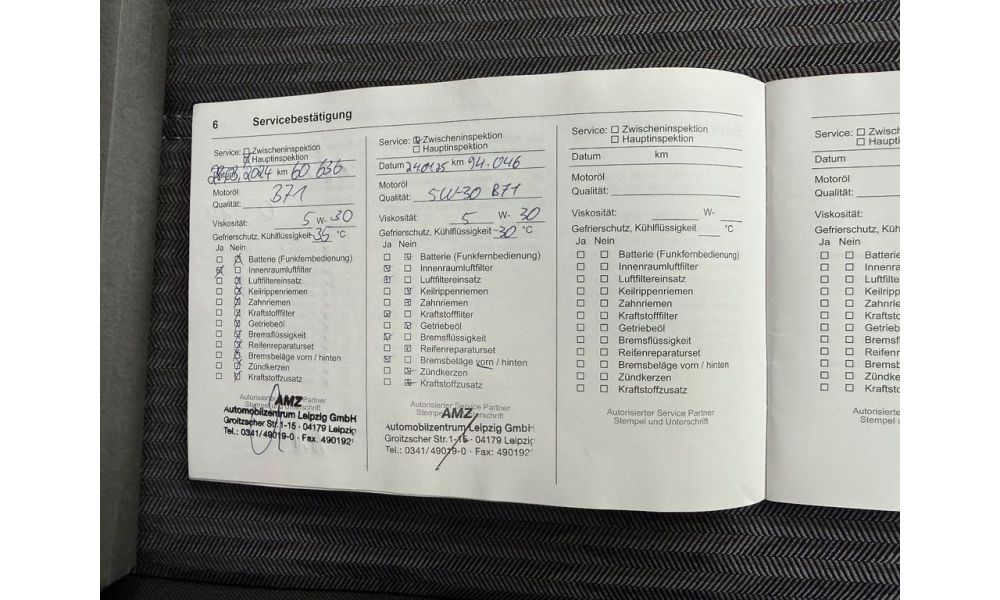 6 Servicebestätigung
Service: Zwischeninspektion
Hauptinspektion
28.03.2024 km 60 636
Motoröl
Qualität: B71
Viskosität: 5 W- 30
Gefrierschutz, Kühlflüssigkeit -35 °C
Ja Nein
Batterie (Funkfernbedienung)
Innenraumluftfilter
Luftfiltereinsatz
Keilrippenriemen
Zahnriemen
Kraftstofffilter
Getriebeöl
Bremsflüssigkeit
Reifenreparaturset
Bremsbeläge vorn / hinten
Zündkerzen
Kraftstoffzusatz
Autorisierter Service Partner
Stempel und Unterschrift
AMZ
Automobilzentrum Leipzig GmbH
Groitzscher Str. 1-15 · 04179 Leipzig
Tel.: 0341/49019-0 · Fax: 490192
Service: Zwischeninspektion
Hauptinspektion
Datum 24.01.25 km 94.046
Motoröl
Qualität: 5W-30 B71
Viskosität: 5 W- 30
Gefrierschutz, Kühlflüssigkeit -30 °C
Ja Nein
Batterie (Funkfernbedienung)
Innenraumluftfilter
Luftfiltereinsatz
Keilrippenriemen
Zahnriemen
Kraftstofffilter
Getriebeöl
Bremsflüssigkeit
Reifenreparaturset
Bremsbeläge vorn / hinten
Zündkerzen
Kraftstoffzusatz
Autorisierter Service Partner
AMZ
Automobilzentrum Leipzig GmbH
Groitzscher Str. 1-15 · 04179 Leipzig
Tel.: 0341/49019-0 · Fax: 490192
Service: Zwischeninspektion
Hauptinspektion
Datum km
Motoröl
Qualität:
Viskosität: W-
Gefrierschutz, Kühlflüssigkeit °C
Ja Nein
Batterie (Funkfernbedienung)
Innenraumluftfilter
Luftfiltereinsatz
Keilrippenriemen
Zahnriemen
Kraftstofffilter
Getriebeöl
Bremsflüssigkeit
Reifenreparaturset
Bremsbeläge vorn / hinten
Zündkerzen
Kraftstoffzusatz
Autorisierter Service Partner
Stempel und Unterschrift
Service: Zwische
Hauptin
Datum
Motoröl
Qualität:
Viskosität:
Gefrierschutz, Kühl
Ja Nein
Batterie
Innenra
Luftfilte
Keilripp
Zahnrie
Kraftsto
Getrieb
Bremsfl
Reifenr
Bremsb
Zündke
Kraftst
Autorisierter
Stempel u